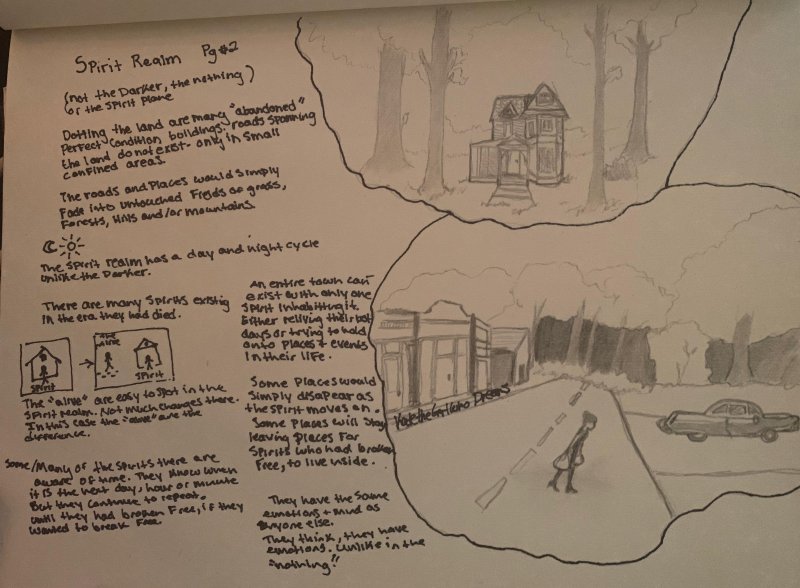 Spirit Realm Pg#2
(not the Darker, the nothing)
or the spirit plane
Dotting the land are many "abandoned"
Perfect condition buildings. roads spanning
the land do not exist- only in small
confined areas.
The roads and places would simply
fade into untouched fields of grass,
Forests, Hills and/or mountains.
The spirit realm has a day and night cycle
unlike the Darker.
There are many spirits existing
in the era they had died.
Spirit
The Alive
Spirit
The "alive" are easy to spot in the
spirit realm. Not much changes there.
In this case the "alive" are the
difference.
Some/Many of the spirits there are
aware of time. They know when
it is the next day, hour or minute
But they continue to repeat.
until they had broken free, if they
wanted to break free.
An entire town can
exist with only one
spirit inhabiting it.
Either reliving their
days or trying to hold
onto places + events
in their life.
Some places would
simply disapear as
the spirit moves on.
Some places will stay
leaving places for
spirits who had broken
free, to live inside.
They have the same
emotions + mind as
anyone else.
They think, they have
emotions. unlike in the
"nothing!"
KateTheGirlWho Dreams